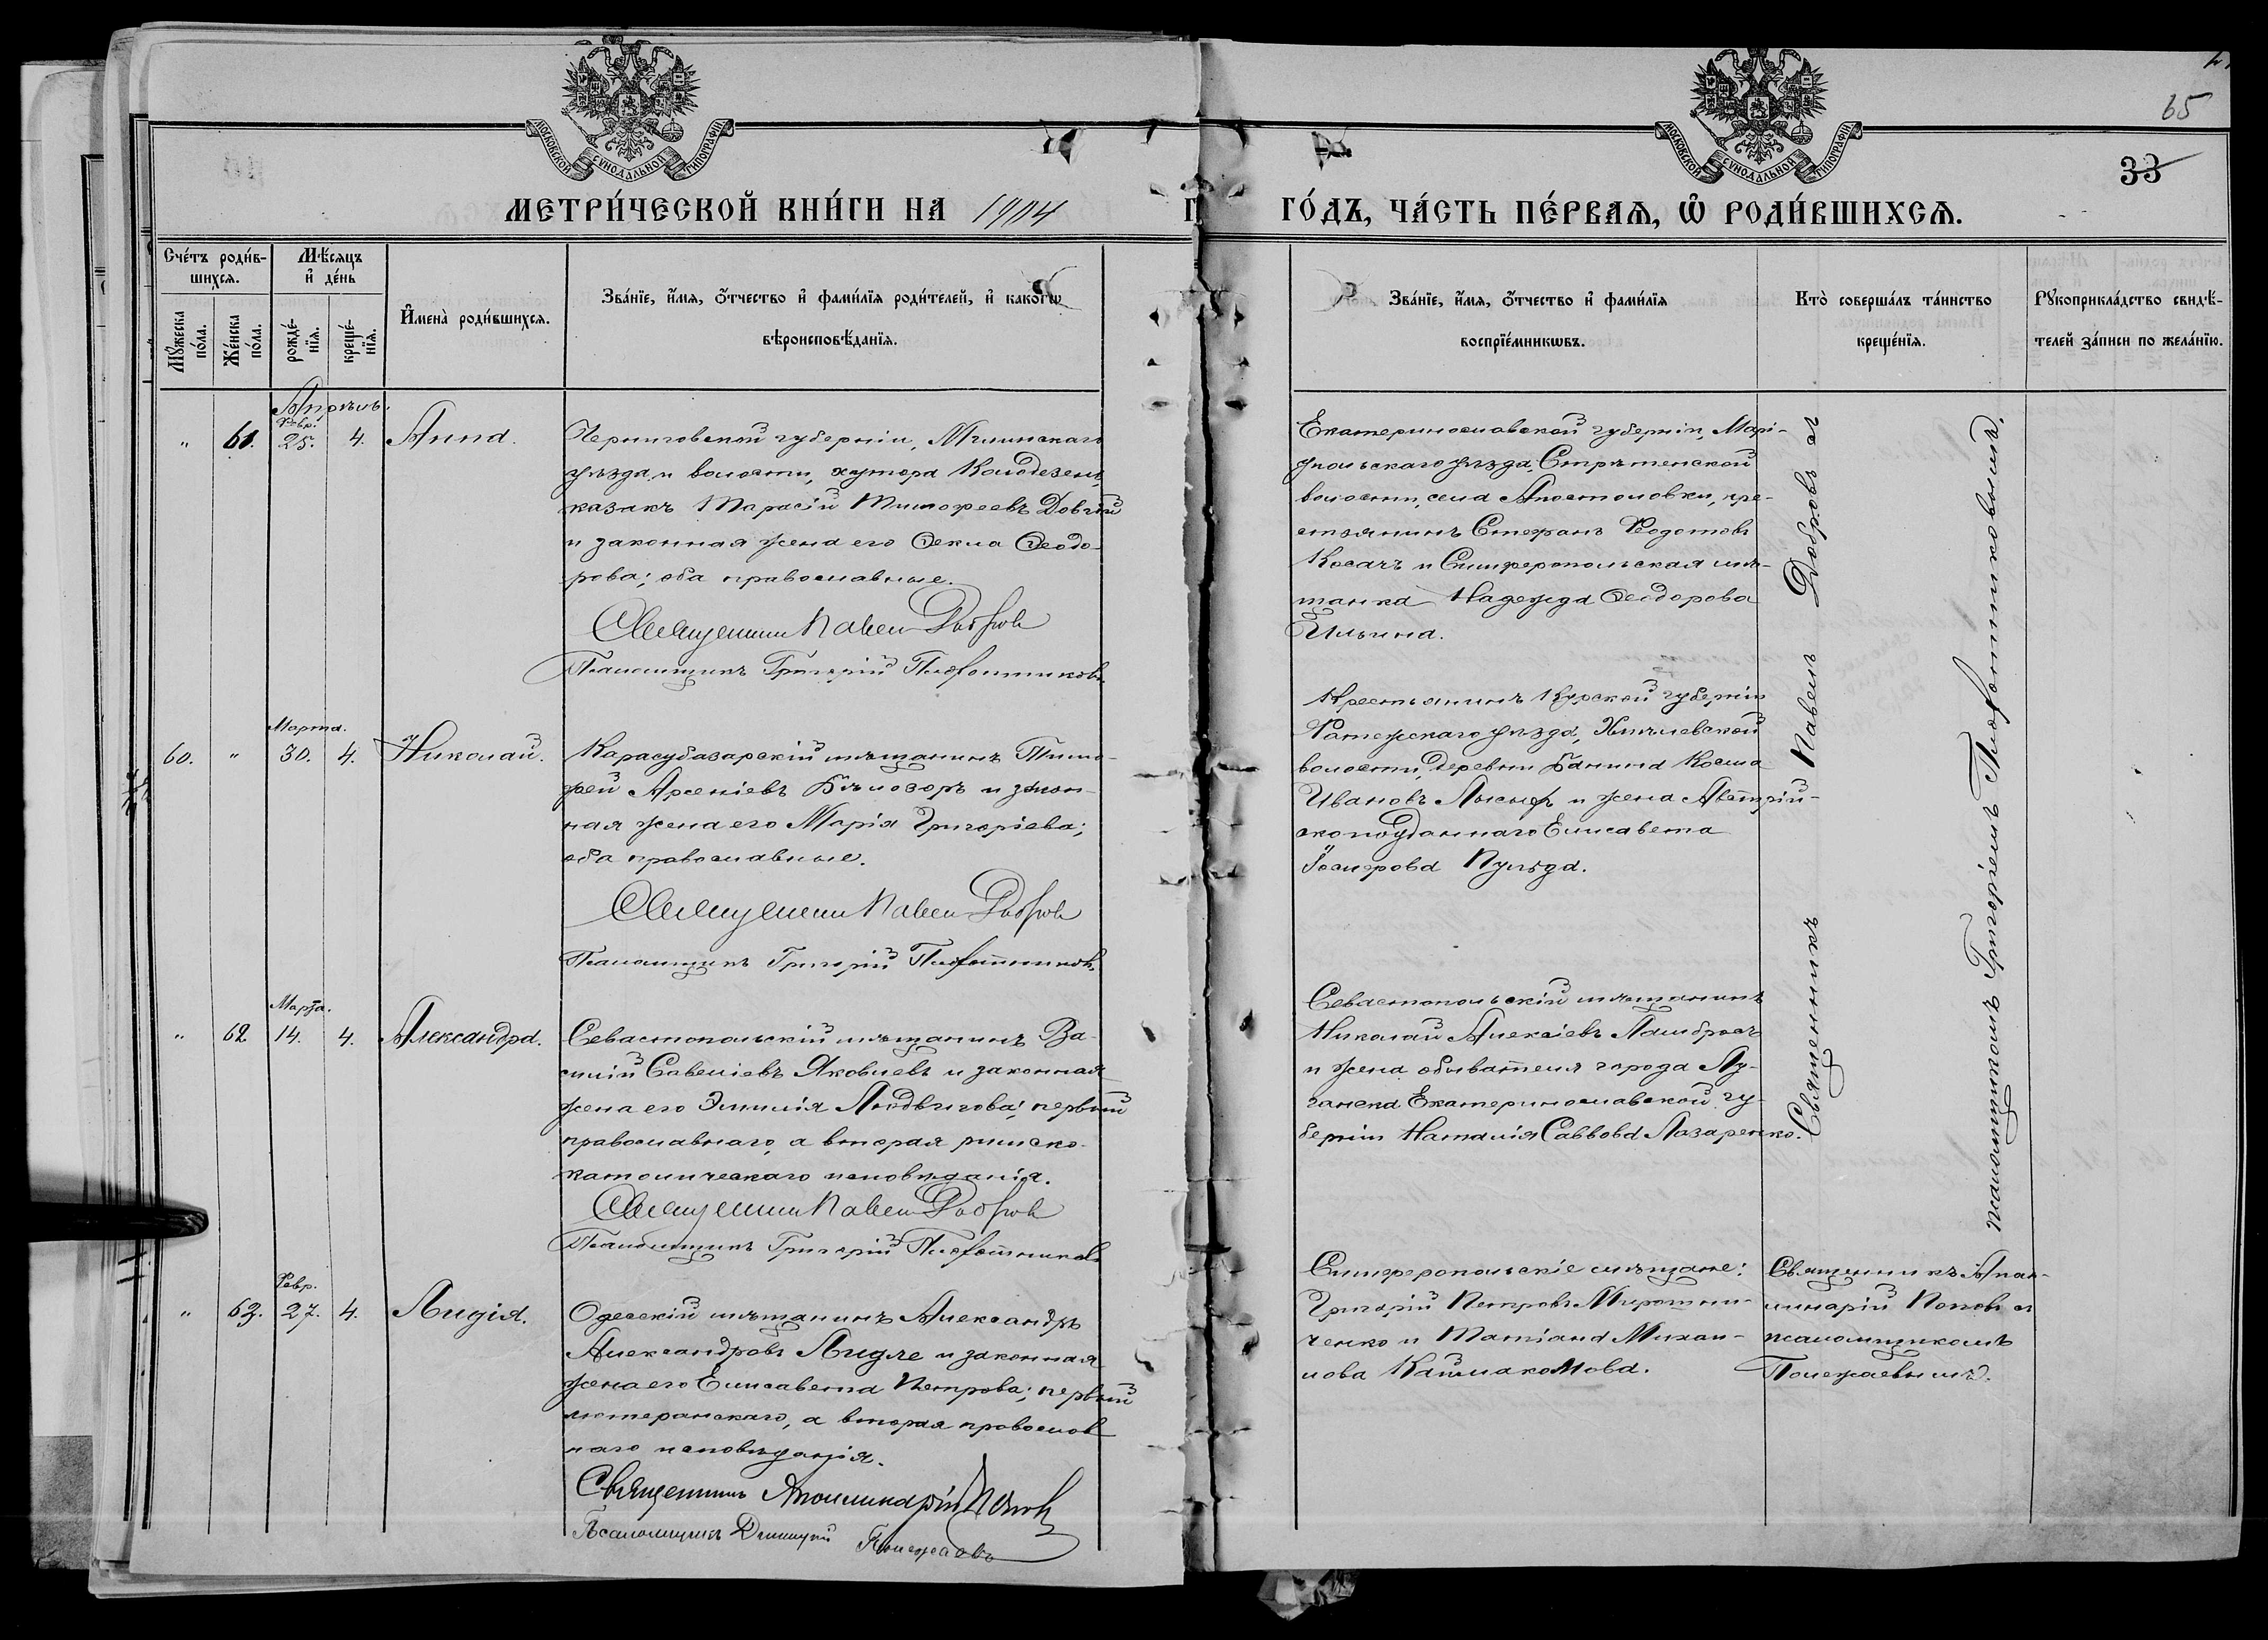 65
33
МОСКОВСКОЙ СѴНОДАЛЬНОЙ ТИПОГРАФІИ
МОСКОВСКОЙ СѴНОДАЛЬНОЙ ТИПОГРАФІИ
МЕТРИ́ЧЕСКОЙ КНИ́ГИ НА 1904
ГО́ДЪ, ЧА́СТЬ ПЕ́РВАѦ, Ѡ҆ РОДИ́ВШИХСѦ.
Сче́тъ роди́в-
шихсѧ.
Мꙋ́жеска по́ла.
Же́нска по́ла.
Мѣ́сѧцъ
и҆ де́нь
рожде́-
нїѧ.
креще́-
нїѧ.
И҆мена̀ роди́вшихсѧ.
Зва́нїе, и҆́мѧ, ѻ҆́тчество и҆ фами́лїѧ роди́телей, и҆ како́гѡ
вѣроисповѣ́данїѧ.
Зва́нїе, и҆́мѧ, ѻ҆́тчество и҆ фами́лїѧ
воспрїе́мникѡвъ.
Кто̀ соверша́лъ та́инство
креще́нїѧ.
Рꙋкоприкла́дство свидѣ́-
телей за́писи по жела́нїю.
Апрѣль.
Февр.
„ 61. 25. 4. Анна.
Черниговской губерніи, Мглинскаго
уѣзда и волости, хутора Колодезенъ,
казакъ Тарасій Тимофеевъ Довгій
и законная жена его Ѳекла Ѳеодо-
рова; оба православные.
Священникъ Павелъ Добровъ
Псаломщикъ Григорій Плотниковъ.
Екатеринославской губерніи, Марі-
упольскаго уѣзда, Стрѣтенской
волости, села Апостоловки, кре-
стьянинъ Стефанъ Федотовъ
Косачъ и Симферопольская мѣ-
щанка Надежда Ѳеодорова
Ильина.
Марта.
60. „ 30. 4. Николай.
Карасубазарскій мѣщанинъ Тимо-
фей Арсеніевъ Бѣлозоръ и закон-
ная жена его Марія Григоріева;
оба православные.
Священникъ Павелъ Добровъ
Псаломщикъ Григорій Плотниковъ.
Крестьянинъ Курской губерніи
Фатежскаго уѣзда,
волости, деревни Банина Косма
Ивановъ и жена Австрій-
скоподданнаго Елисавета
Іосифова
Марта.
„ 62 14. 4. Александра.
Севастопольскій мѣщанинъ Ва-
силій Савеліевъ Яковлевъ и законная
жена его Эмилія Людвигова; первый
православнаго, а вторая римско-
католическаго исповѣданія.
Священникъ Павелъ Добровъ
Псаломщикъ Григорій Плотниковъ
Севастопольскій мѣщанинъ
Николай Алексіевъ
и жена обывателя города Лу-
ганска Екатеринославской гу-
берніи Наталія Саввова Лазаренко.
Священникъ Павелъ Добровъ съ
псаломщикомъ Григоріемъ Плотниковымъ.
Февр.
„ 63. 27. 4. Лидія.
Одесскій мѣщанинъ Александръ
Александровъ Лидле и законная
жена его Елисавета Петрова; первый
лютеранскаго, а вторая православ
наго исповѣданія.
Священникъ Аполлинарій Поповъ
Псаломщикъ Димитрій Полежаевъ
Симферопольскіе мѣщане:
Григорій Петровъ Мирошни-
ченко и Татіана Михаи-
лова
Священникъ Апол-
линарій Поповъ съ
псаломщикомъ
Полежаевымъ.